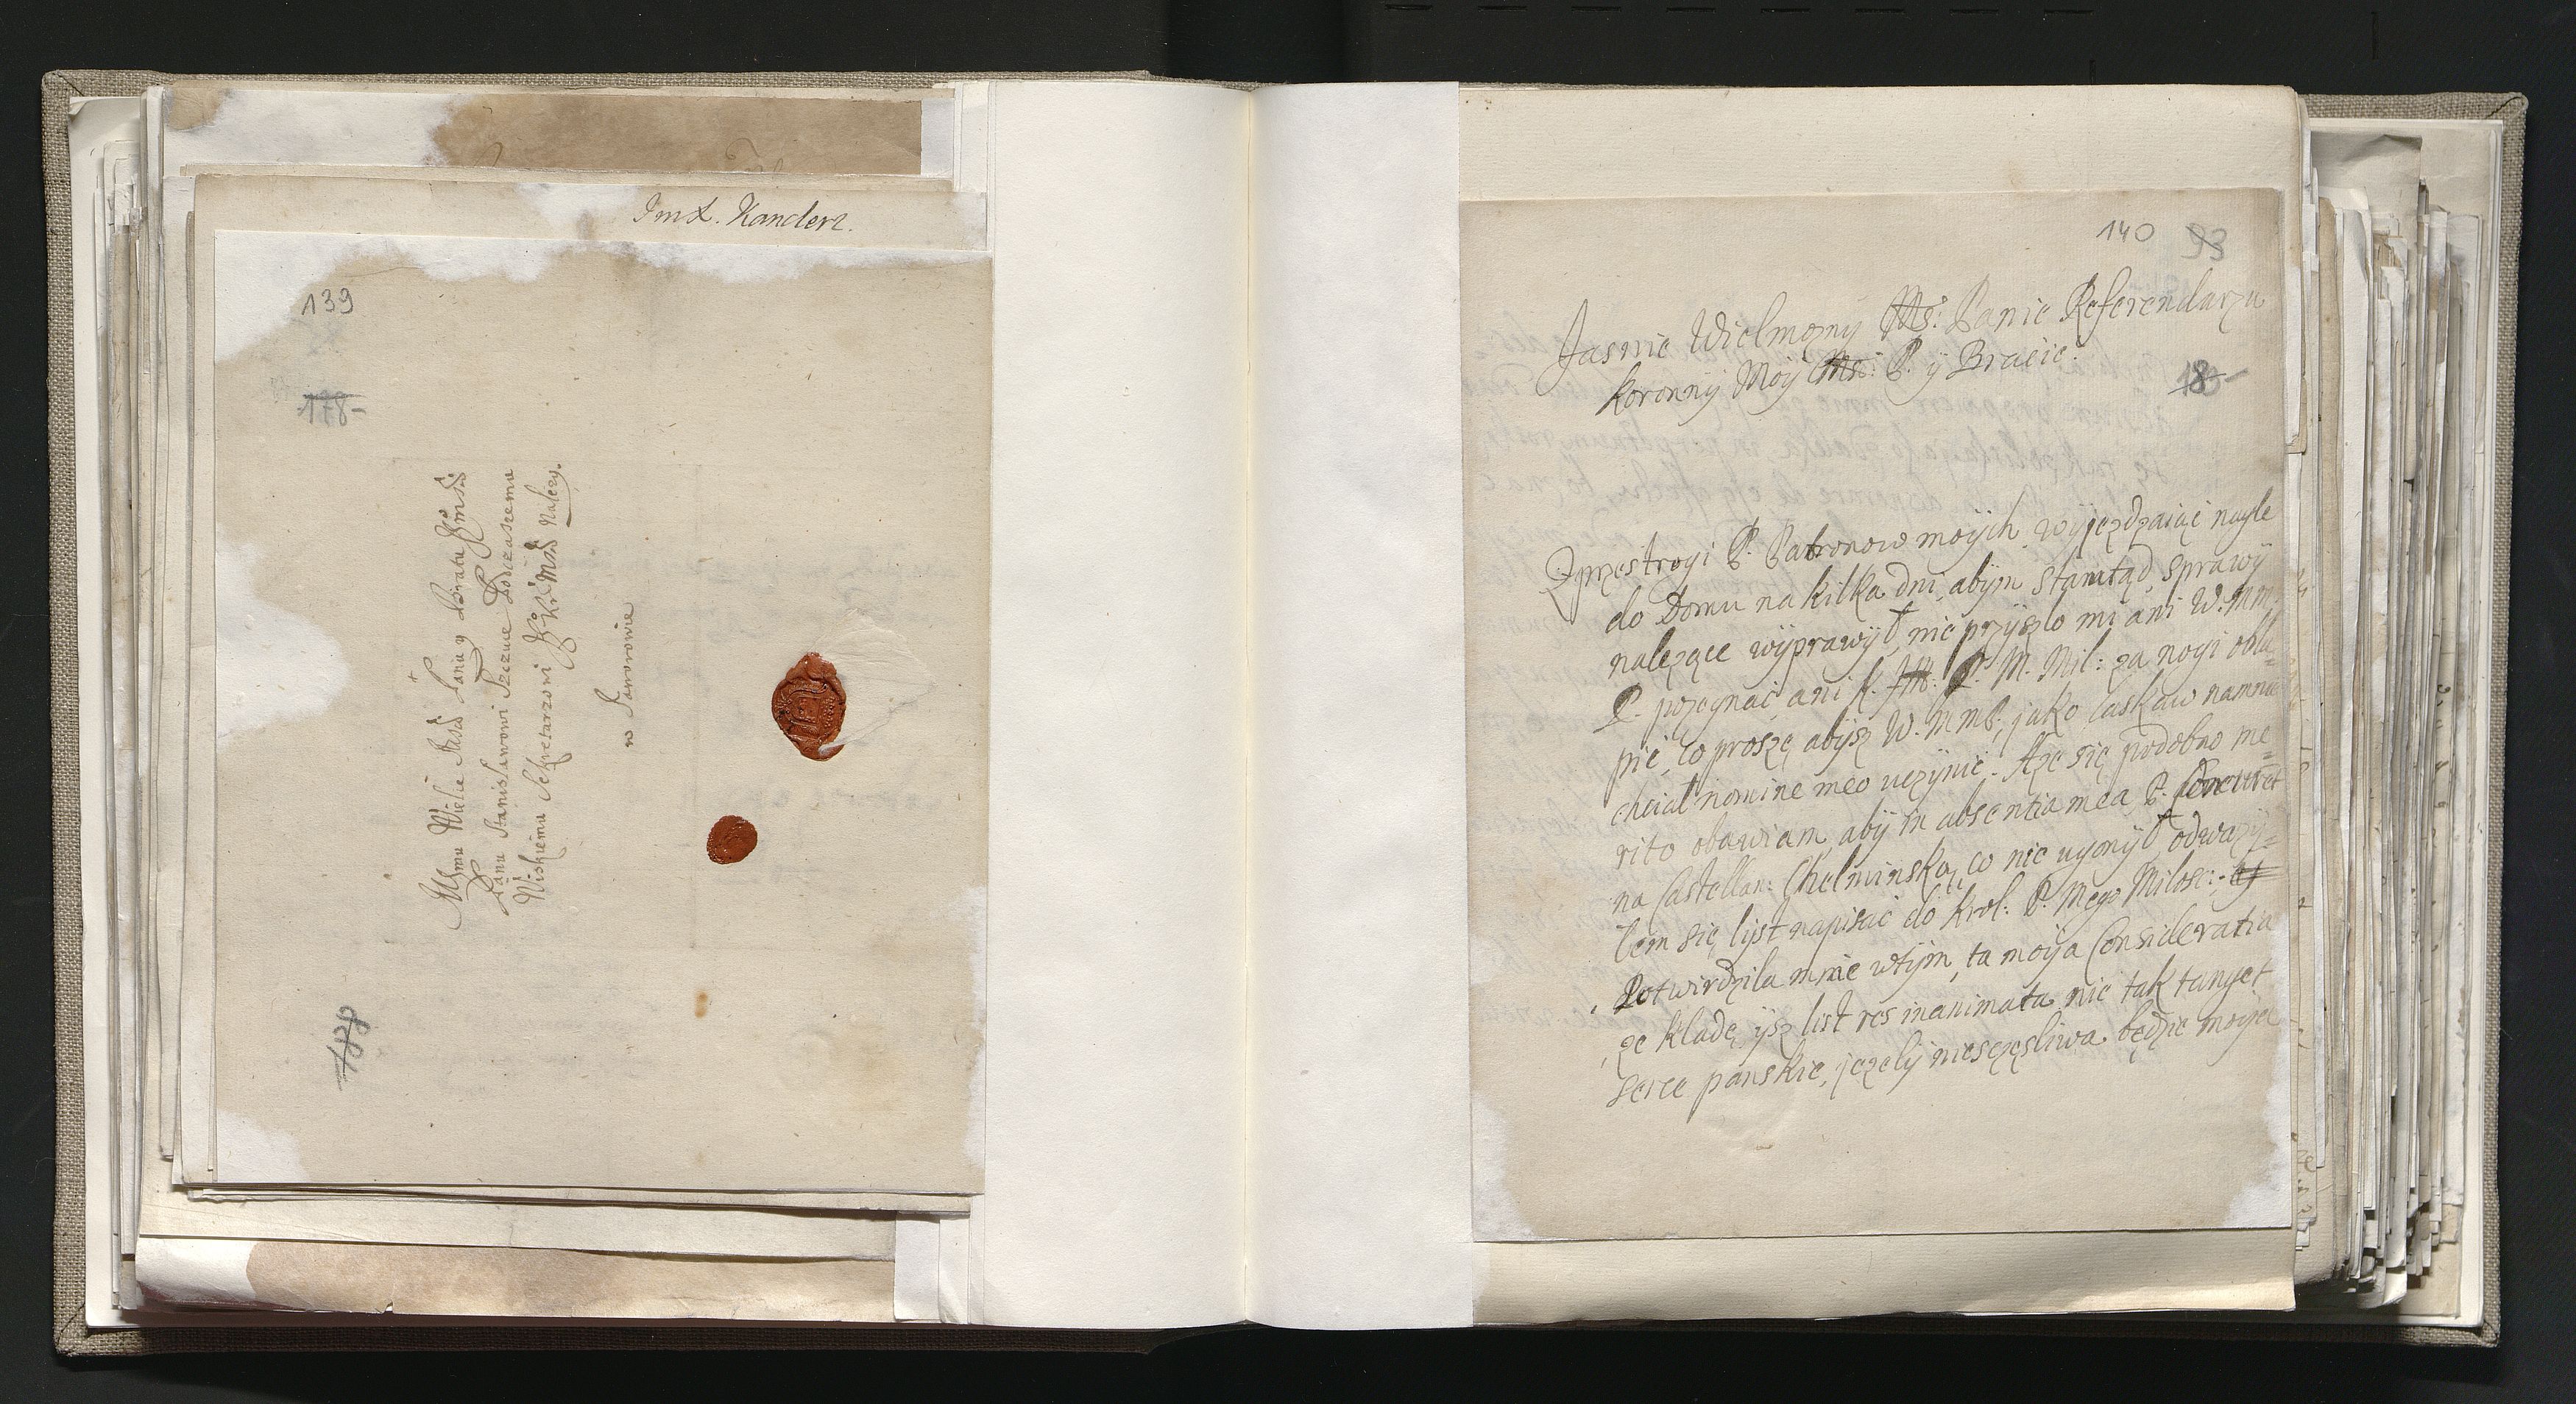 Imx. Kanderz.
139
178
Memu Wielce Msci Panu y Bratu Jmsci
Panu Stanisławowi Szczuce Podczaszemu
Wiskiemu Sekretarzowi JKrMsci Nalezy.
w Jaworowie
188
140 93
Jasnie Wielmozny Ms: Panie Referendarzu
Koronny Moÿ Ms: P. ÿ Bracie.
18
Z przestrogi P. Patronow moÿch wÿjezdzaiąc nagle
do Domu na kilka dni, abÿm stamtąd sprawÿ
nalezące wÿprawÿł, nie przÿszlo mi ani W. M M.
P. pozegnac, ani K. Jm. P. M. Mil: za nogi obla=
pic, co proszę abÿsz W. M M P. jako łaskaw na mnie
chciał nomine meo uczÿnic. Aze się podobno me=
rito obawiam, abÿ in absentia mea P. concurret
na Castellan: Chełminską, co nie uÿmÿł, odwazÿ=
lem się lÿst napisac do Krol: P. Mego Milosc:
Potwirdziła mnie w tÿm, ta moÿa Consideratia
ze kladę, ÿsz list res inanimata nie tak tanget
serce panskie, jezelÿ niesczęsliwa będzie moÿa